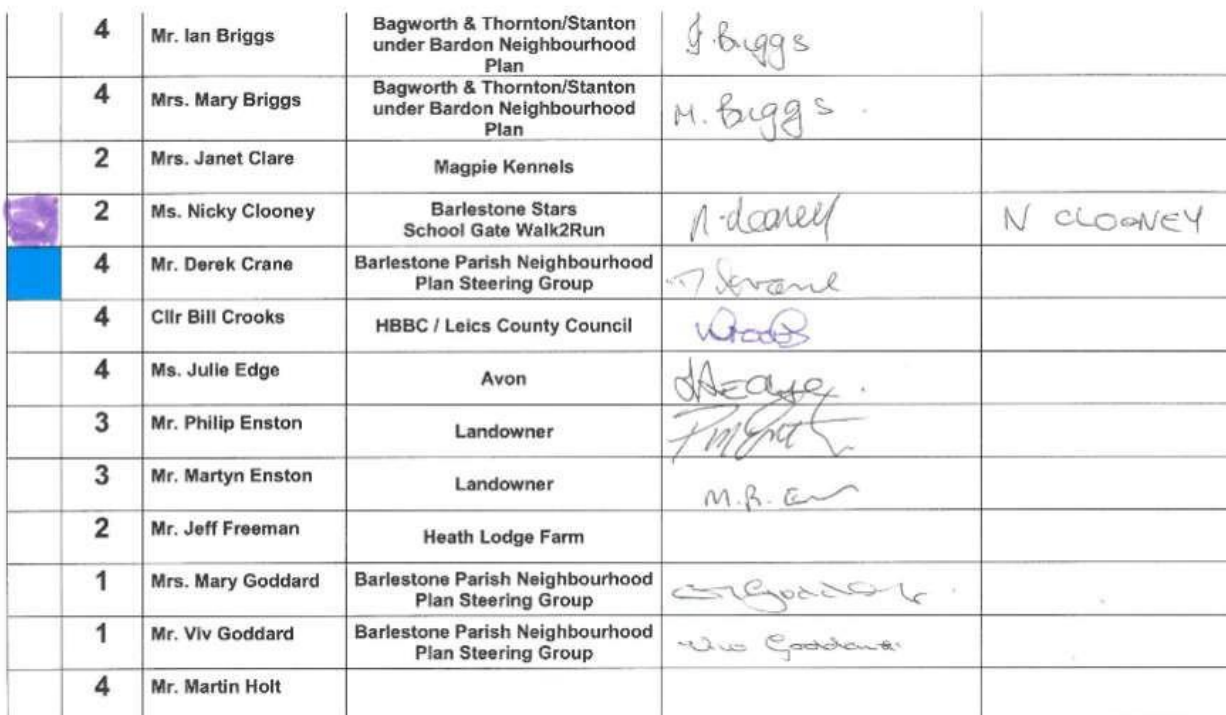 4 Mr. Ian Briggs Bagworth & Thornton/Stanton
under Bardon Neighbourhood
Plan J. Briggs
4 Mrs. Mary Briggs Bagworth & Thornton/Stanton
under Bardon Neighbourhood
Plan M. Briggs.
2 Mrs. Janet Clare Magpie Kennels
2 Ms. Nicky Clooney Barlestone Stars
School Gate Walk2Run N. Clooney N CLOONEY
4 Mr. Derek Crane Barlestone Parish Neighbourhood
Plan Steering Group
4 Cllr Bill Crooks HBBC / Leics County Council
4 Ms. Julie Edge Avon
3 Mr. Philip Enston Landowner
3 Mr. Martyn Enston Landowner M.R.
2 Mr. Jeff Freeman Heath Lodge Farm
1 Mrs. Mary Goddard Barlestone Parish Neighbourhood
Plan Steering Group
1 Mr. Viv Goddard Barlestone Parish Neighbourhood
Plan Steering Group Viv Goddard
4 Mr. Martin Holt